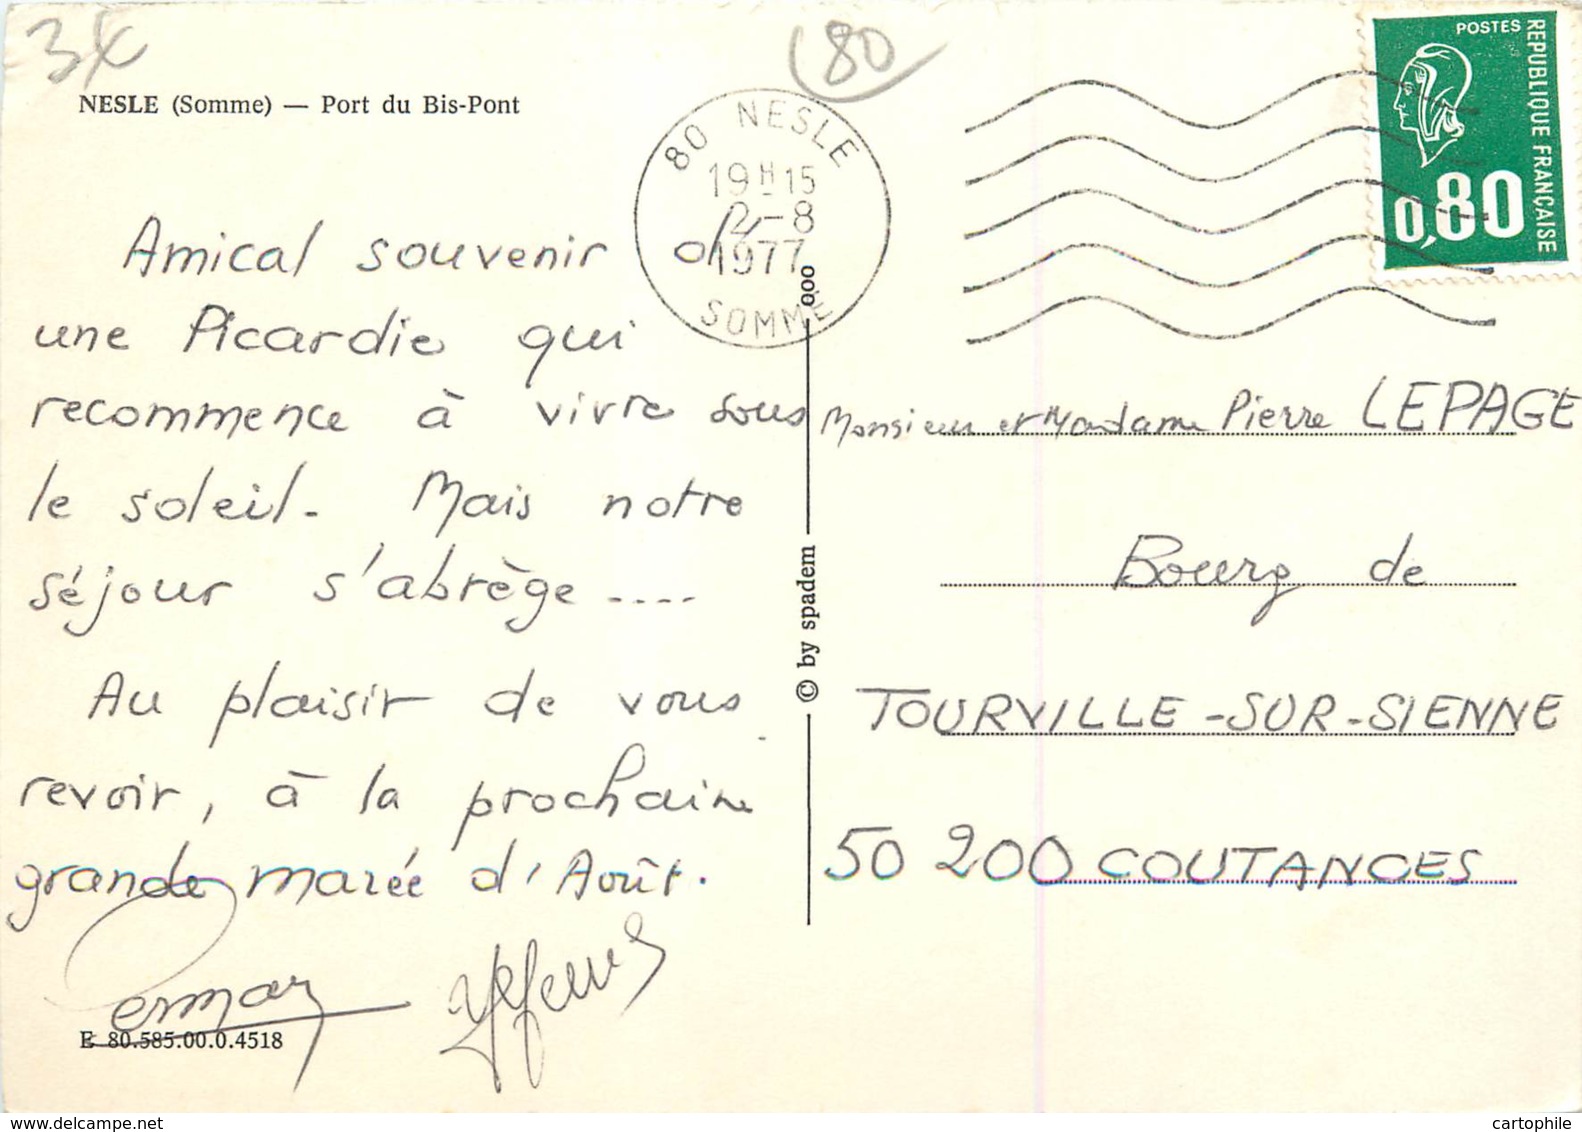 3x
80
NESLE (Somme) — Port du Bis-Pont
80 NESLE
19H15
2-8
1977
SOMME
POSTES
REPUBLIQUE FRANÇAISE
0,80
Amical souvenir d'
une Picardie qui
recommence à vivre sous
le soleil. Mais notre
séjour s'abrège ....
Au plaisir de vous
revoir, à la prochaine
grande marée d'Août.
E 80.585.00.0.4518
© by spadem
000
Monsieur et Madame Pierre LEPAGE
Bourg de
TOURVILLE-SUR-SIENNE
50 200 COUTANCES
www.cartophile.com - cartophile